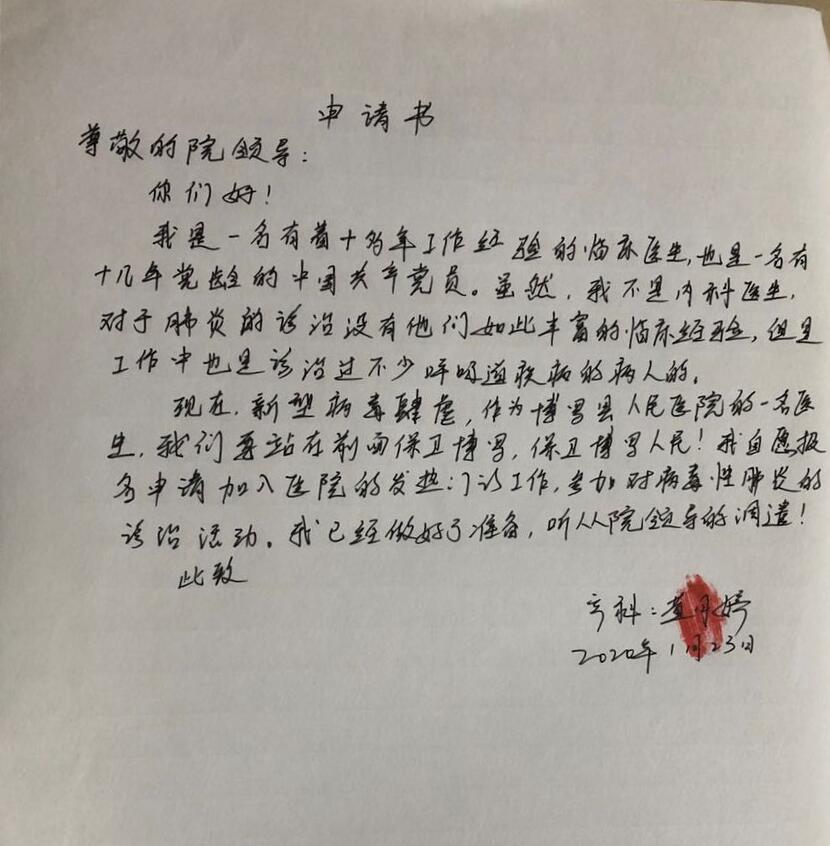 申请书
尊敬的院领导:
你们好!
我是一名有着十多年工作经验的临床医生,也是一名有
十几年党龄的中国共产党员。虽然,我不是内科医生,
对于肺炎的诊治没有他们如此丰富的临床经验,但是
工作中也是诊治过不少呼吸道疾病的病人的。
现在,新型病毒肆虐,作为博罗县人民医院的一名医
生,我们要站在前面保卫博罗,保卫博罗人民!我自愿报
名申请加入医院的发热门诊工作,参加对病毒性肺炎的
诊治活动。我已经做好了准备,听从院领导的调遣!
此致
科:
2020年1月23日